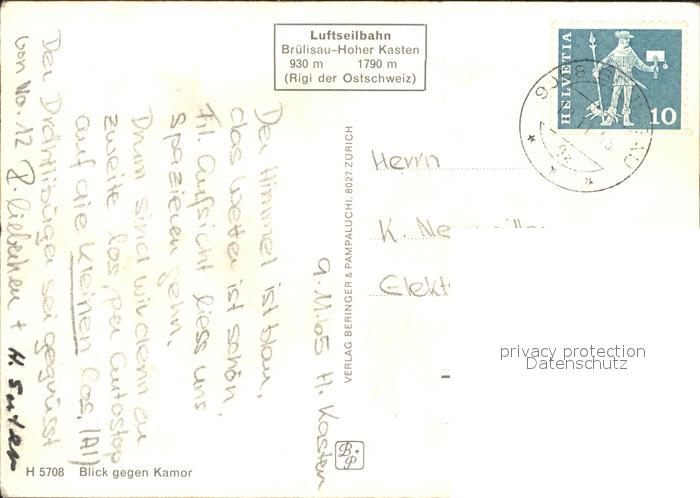 Luftseilbahn
Brülisau–Hoher Kasten
930 m 1790 m
(Rigi der Ostschweiz)
HELVETIA
10
9.11.65 H. Kasten
Der Himmel ist blau,
das Wetter ist schön,
Frl. Aufsicht liess uns
spazieren gehn.
Drum sind wir denn zu
zweite los, per Autostop
auf die kleinen los, (A1)
Der Drähtlibüger sei gegrüsst
von No. 12
+ H. Suter
VERLAG BERINGER & PAMPALUCHI, 8027 ZÜRICH
Herrn
K.
Elekt
privacy protection
Datenschutz
B+P
H 5708 Blick gegen Kamor